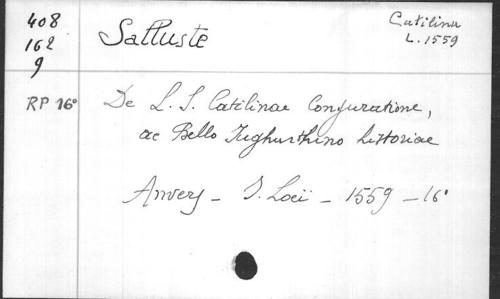 408
162
9
Salluste
Catilina
L. 1559
RP 16°
De L. S. Catilinae Conjuratione,
ac Bello Iughurthino historiae
Anvers - I. Loëi - 1559 - 16°